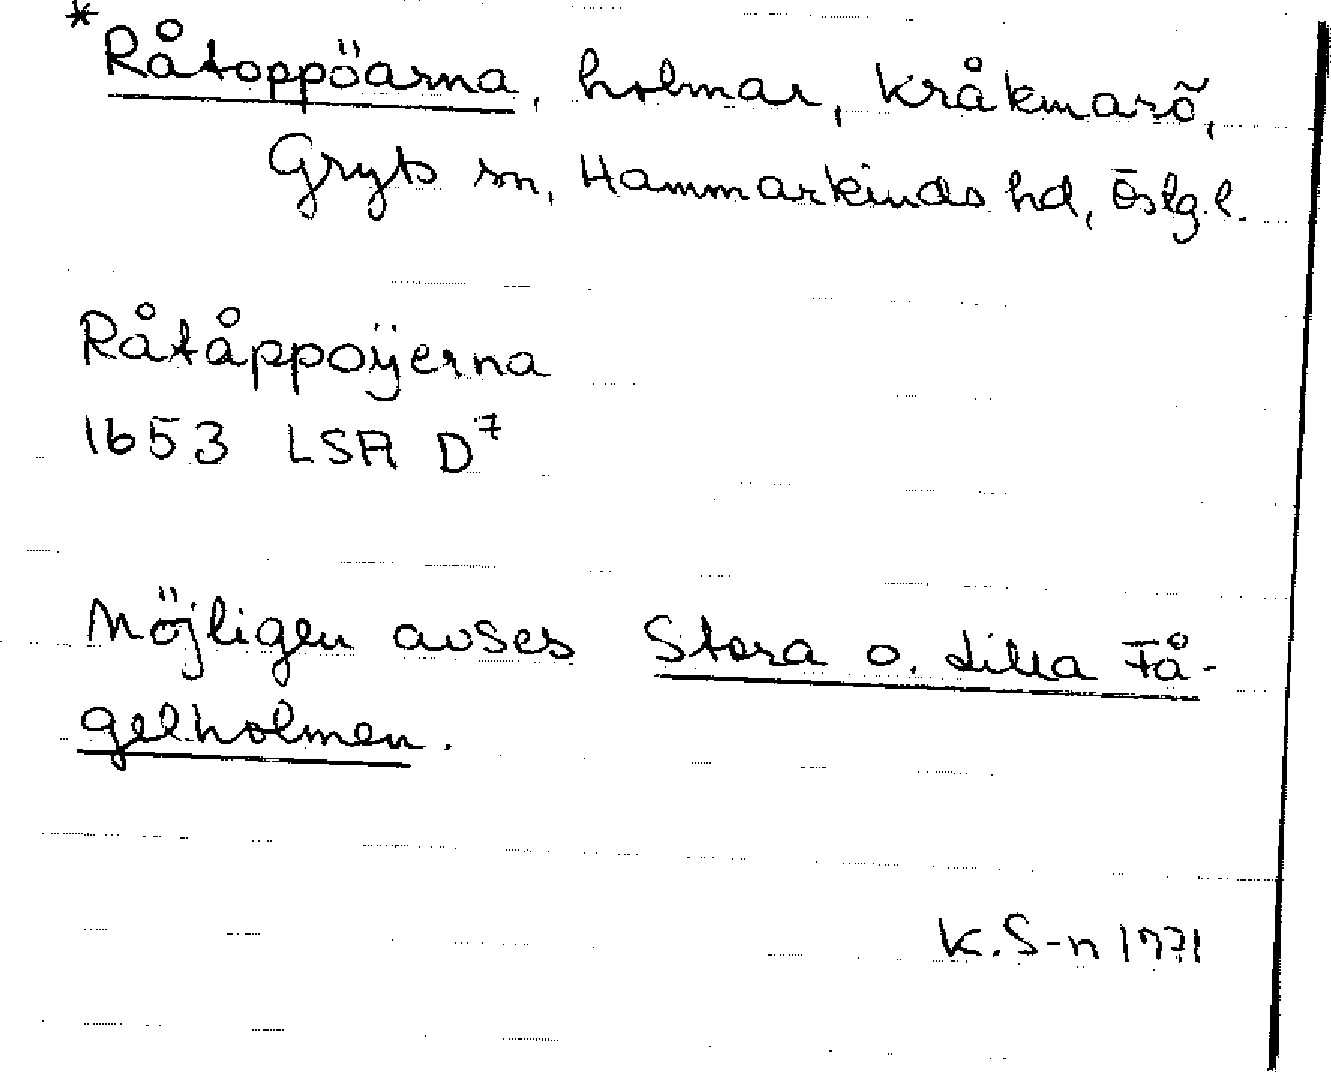 *Råtoppöarna, holmar, Kråkmarö,
Gryts sn, Hammarkinds hd, Östg.l.
Råtåppoÿerna
1653 LSA D7
Möjligen avses Stora o. Lilla Få-
gelholmen.
K.S-n 1971